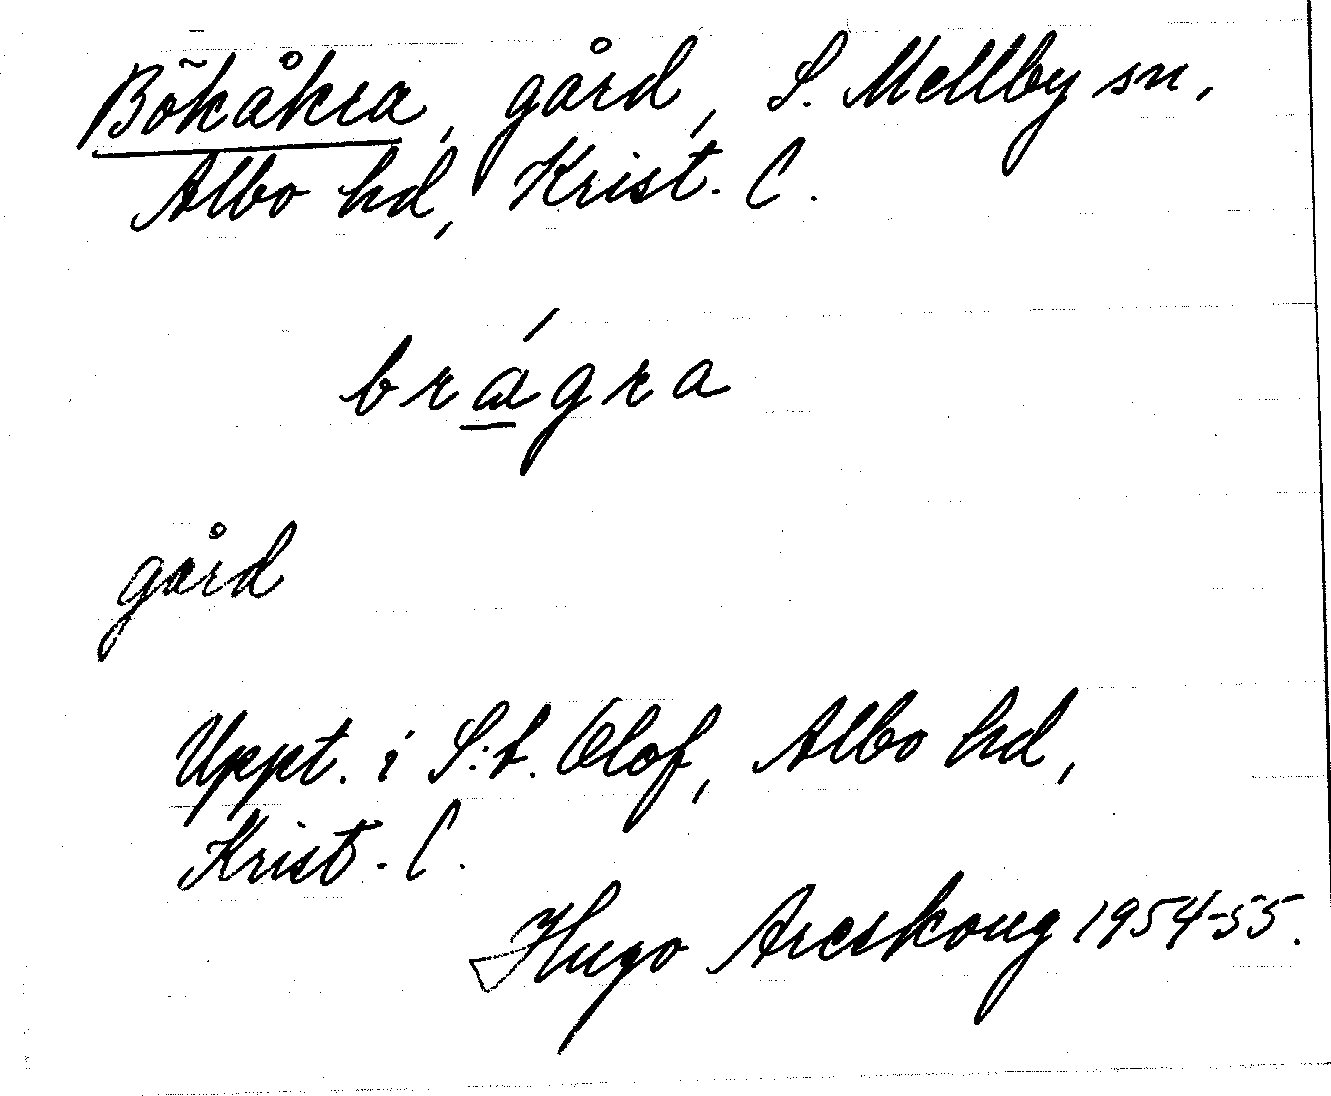 Bökåkra, gård, S. Mellby sn,
Albo hd, Krist. C.
brágra
gård
Uppt. i S:t. Olof, Albo hd,
Krist. C.
Hugo Areskoug 1954-55.